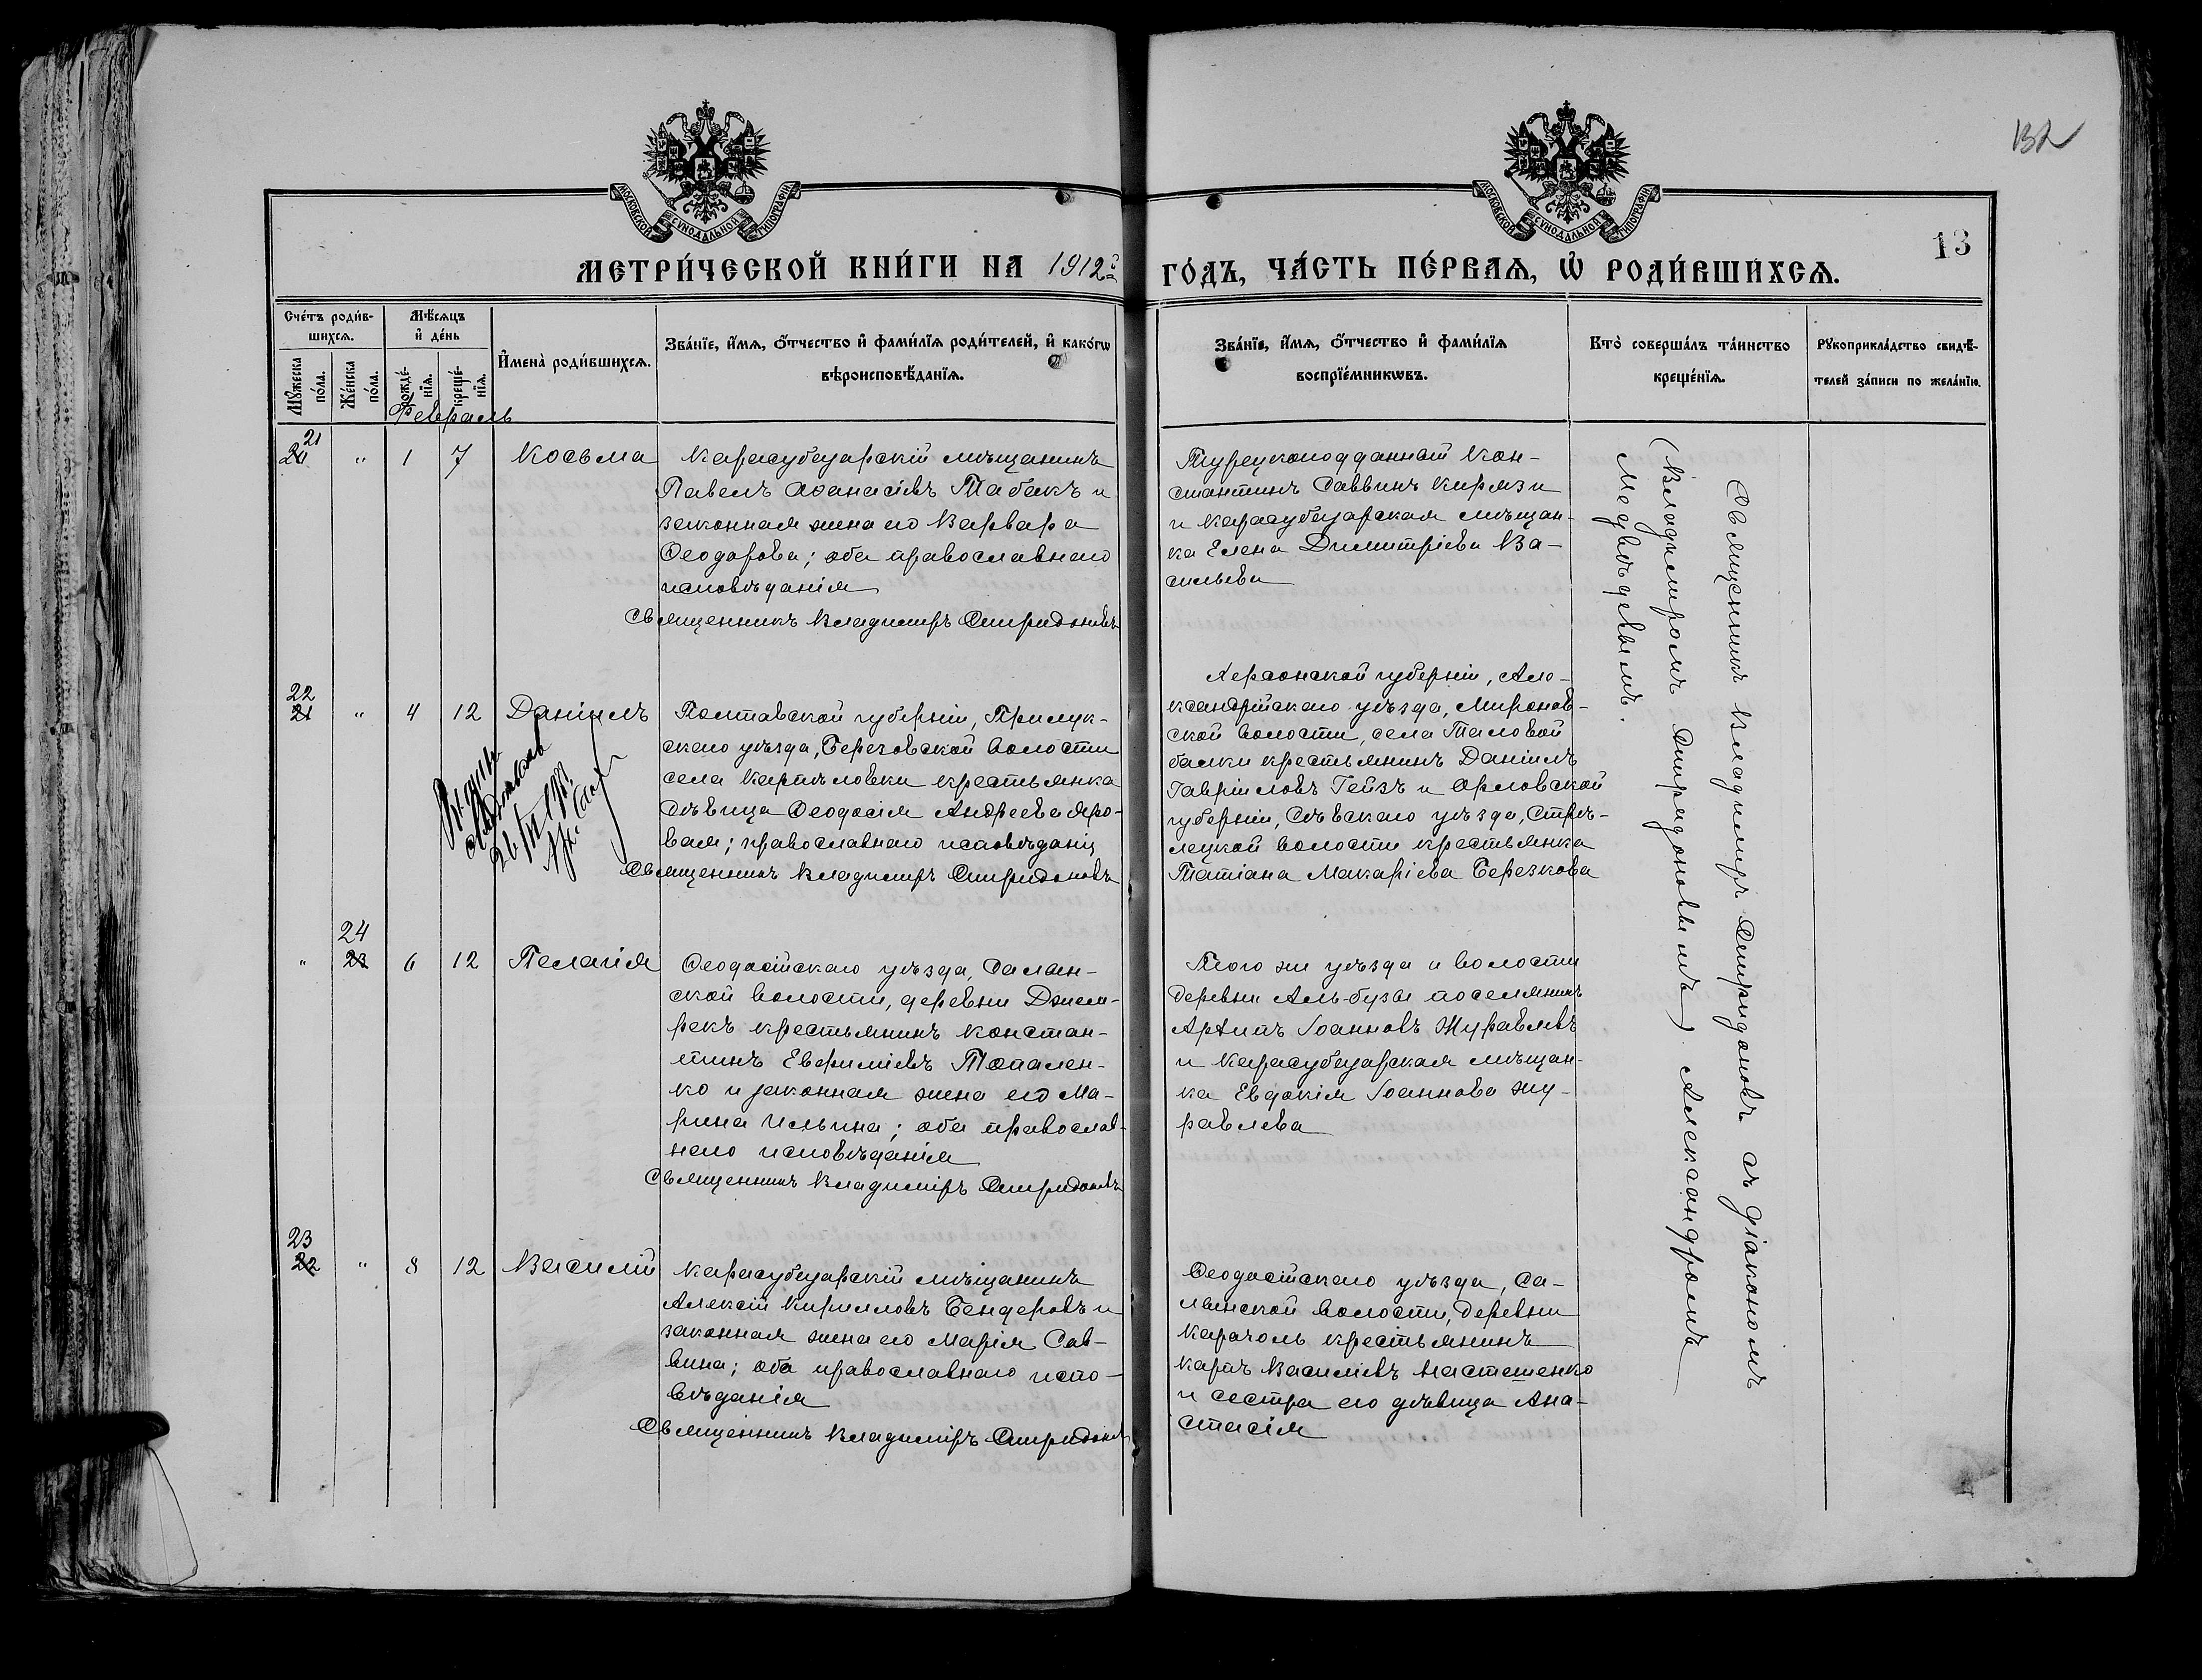 132
МОСКОВСКОЙ СѴНОДАЛЬНОЙ ТИПОГРАФІИ
МОСКОВСКОЙ СѴНОДАЛЬНОЙ ТИПОГРАФІИ
13
МЕТРИ́ЧЕСКОЙ КНИ́ГИ НА 1912й
ГО́ДЪ, ЧА́СТЬ ПЕ́РВАѦ, Ѡ҆ РОДИ́ВШИХСѦ.
Сче́тъ роди́в-
шихсѧ.
Мꙋ́жеска
по́ла.
Же́нска
по́ла.
Мѣ́сѧцъ
и҆ де́нь
рожде́-
нїѧ.
креще́-
нїѧ.
И҆мена̀ роди́вшихсѧ.
Зва́нїе, и҆́мѧ, ѻ҆́тчество и҆ фами́лїѧ роди́телей, и҆ како́гѡ
вѣроисповѣ́данїѧ.
Зва́нїе, и҆́мѧ, ѻ҆́тчество и҆ фами́лїѧ
воспрїе́мникѡвъ.
Кто̀ соверша́лъ та́инство
креще́нїѧ.
Рꙋкоприкла́дство свидѣ́-
телей за́писи по жела́нїю.
Февраль
21
" 1 7 Косьма
Карасубазарскій мѣщанинъ
Павелъ Аѳанасіевъ Табакъ и
законная жена его Варвара
Ѳеодорова; оба православнаго
исповѣданія
Священникъ Владимиръ Спиридоновъ
Турецкоподданный Кон-
стантинъ Саввинъ Кирязи
и Карасубазарская мѣщан-
ка Елена Димитріева Ва-
сильева
22
21 " 4 12 Даніилъ
Полтавской губерніи, Прилук-
скаго уѣзда, Березовской волости
села Карпиловки крестьянка
дѣвица Ѳеодосія Андреева Яро-
вая; православнаго исповѣданія
Священникъ Владимиръ Спиридоновъ
Херсонской губерніи, Але-
ксандрійскаго уѣзда, Миронов-
ской волости, села Таловой
балки крестьянинъ Даніилъ
Гавріиловъ Гейзъ и Орловской
губерніи, Сѣвскаго уѣзда, Стрѣ-
лецкой волости крестьянка
Татіана Макаріева Березкова
24
" 23 6 12 Пелагія
Ѳеодосійскаго уѣзда, Салын-
ской волости, деревни Джем-
рекъ крестьянинъ Констан-
тинъ Евфиміевъ Топален-
ко и законная жена его Ма-
рина Ильина; оба православ-
наго исповѣданія
Священникъ Владимиръ Спиридоновъ
Того же уѣзда и волости
деревни Аль-бузы поселянинъ
Архипъ Іоанновъ Журавлевъ
и Карасубазарская мѣщан-
ка Евдокія Іоаннова Жу-
равлева
23
22 " 8 12 Василій
Карасубазарскій мѣщанинъ
Алексій Кирилловъ Бендеровъ и
законная жена его Марія Сав-
вина; оба православнаго испо-
вѣданія
Священникъ Владимиръ Спиридоновъ
Ѳеодосійскаго уѣзда, Са-
лынской волости, деревни
Карачоль крестьянинъ
Карпъ Василіевъ Мастетенко
и сестра его дѣвица Ана-
стасія
Священникъ Владимиръ Спиридоновъ съ діакономъ
(Владимиромъ Спиридоновымъ) Александромъ
Медвѣдевымъ.